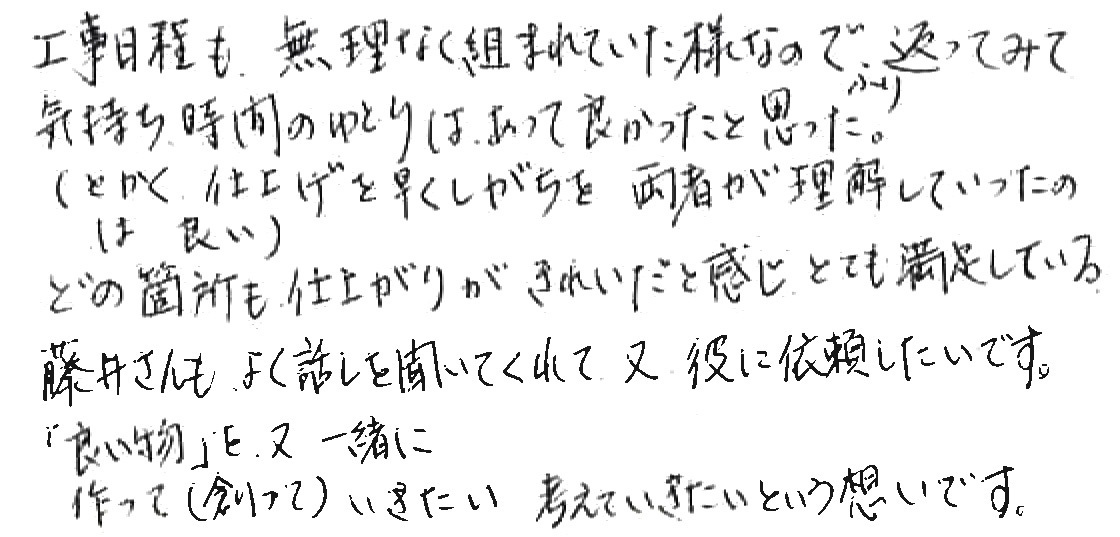 工事日程も、無理なく組まれていた様なので、ふり返ってみて
気持ち、時間のゆとりは、あって良かったと思った。
(とかく、仕上げを早くしがちを 両者が理解していったの
は 良い)
どの箇所も、仕上がりが きれいだと感じ、とても満足している
藤井さんも、よく話しを聞いてくれて、又、役に依頼したいです。
「良い物」を、又 一緒に
作って(創って)いきたい 考えていきたいという想いです。